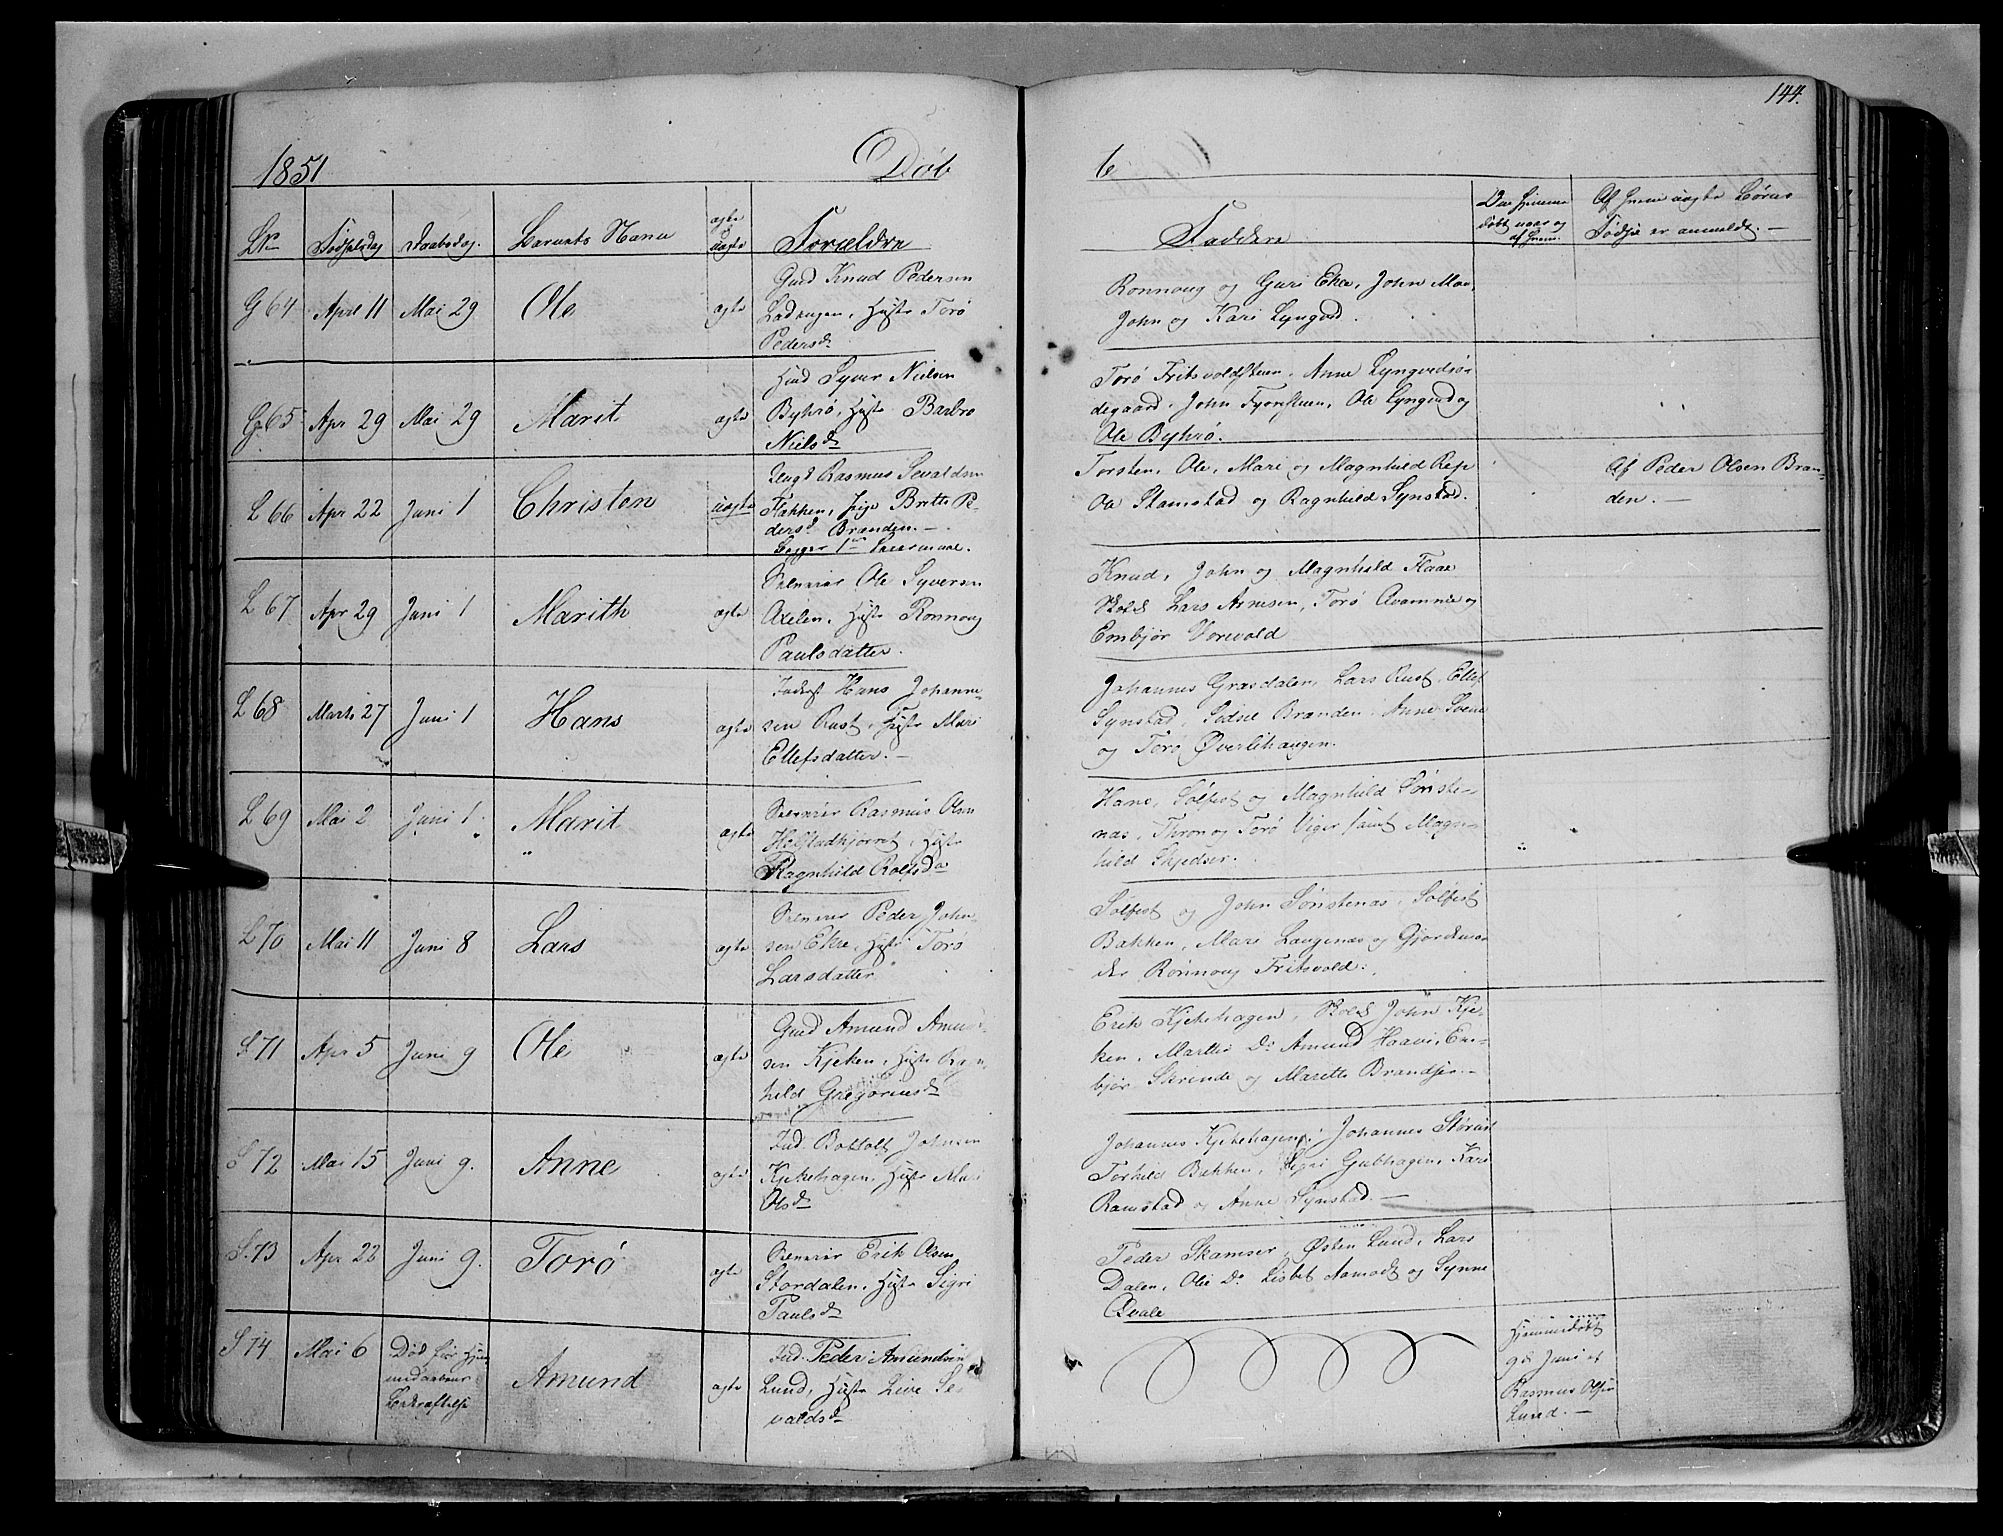 144.
1851
Døb
6
Lno Fødselsdag Daabsdag. Barnets Navn ægte uægte Forældre
Faddere
Af hvem uægte Børns
Fødsel er anmeldt. —
G 64 April 11 Mai 29 Ole ægte
Gmd Knud Pedersen
Ladangen, Hustr Torø
Pedersdr
Ronnoug og Guri Ekre, John Moe,
John og Kari Lyngved.
G. 65 Apr 29 Mai 29 Marit ægte
Hmd Syver Nielsen
Byhrø, Hustr Barbro
Nielsdr
Torø Fritsvoldsteen. Anne Lyngvedsø-
degaard, John Fyonsteen, Ole Lyngved og
Ole Byhrø.
L 66 Apr 22 Juni 1 Christen uægte
Ungk Rasmus Sevaldsen
Flakken, pige Britte Pe-
dersd Brænden. —
Begges 1ste Leiermaal.
Torsten, Ole, Mari og Magnhild Rep
Ole Stamstad og Ragnhild Synstad.
Af Peder Olsen Bræn-
den. —
L 67 Apr 29 Juni 1 Marith ægte
Ole Syversen
Oxelen, Hustr Ronnoug
Paulsdatter.
Knud, John og Magnhild Flaae
Lars Arnesen, Torø Avamnie og
Embjør Vorevold
L 68 Marts 27 Juni 1 Hans ægte
Hans Johanne-
sen Rust, Hustr Mari
Ellefsdatter. —
Johannes Græsdalen, Lars Rust, Ellef
Synstad, Sidsel Brænden. Anne Svene
og Torø Øverlihaugen.
L 69 Mai 2 Juni 1 Marit ægte
Rasmus Olsen
Helstadkjørret, Hustr
Ragnhild Rolfsdr
Hans, Solfest og Magnhild Sønste-
næs, Thron og Torø Viger samt Magn-
hild Skjedser.
L 70 Mai 11 Juni 8 Lars ægte
Peder John-
sen Ekre, Hustr Torø
Larsdatter
Solfest og John Sønstenæs, Solfest
Bakken, Mari Langenæs og Gjordemo-
der Ronnoug Fritsvold.
S 71 Apr 5 Juni 9 Ole ægte
Gmd Amund Amund-
sen Kjeken, Hustr Ragn-
hild Gregoriusdr
Erik Kjekehagen, John Kje-
ken, Marthe Do Amund Haave, Em-
bjør Skrinde og Marette Brandjen. —
S 72 Mai 15 Juni 9. Anne ægte
Ind. Bottolf Johnsen
Kjekehagen, Hustr Mari
Olsdr
Johannes Kjekehagen, Johannes Storust
Torhild Bakken, Sigri Gubhagen, Kari
Ramstad og Anne Synstad. —
S. 73 Apr 22 Juni 9. Torø ægte
Erik Olsen
Stordalen, Hustr Sigri
Paulsdr
Peder Skamser, Østen Lund, Lars
Dalen, Ole Do Lisbet Aamodt og Synne
Qvale
S 74 Mai 6 Død før Hjem-
medaabens
Bekræftelse
Amund ægte
Ind. Peder Amundsen
Lund, Hustr Live Se-
valdsdr
Hjemmedøbt
9de Juni af
Rasmus Olsen
Lund. —